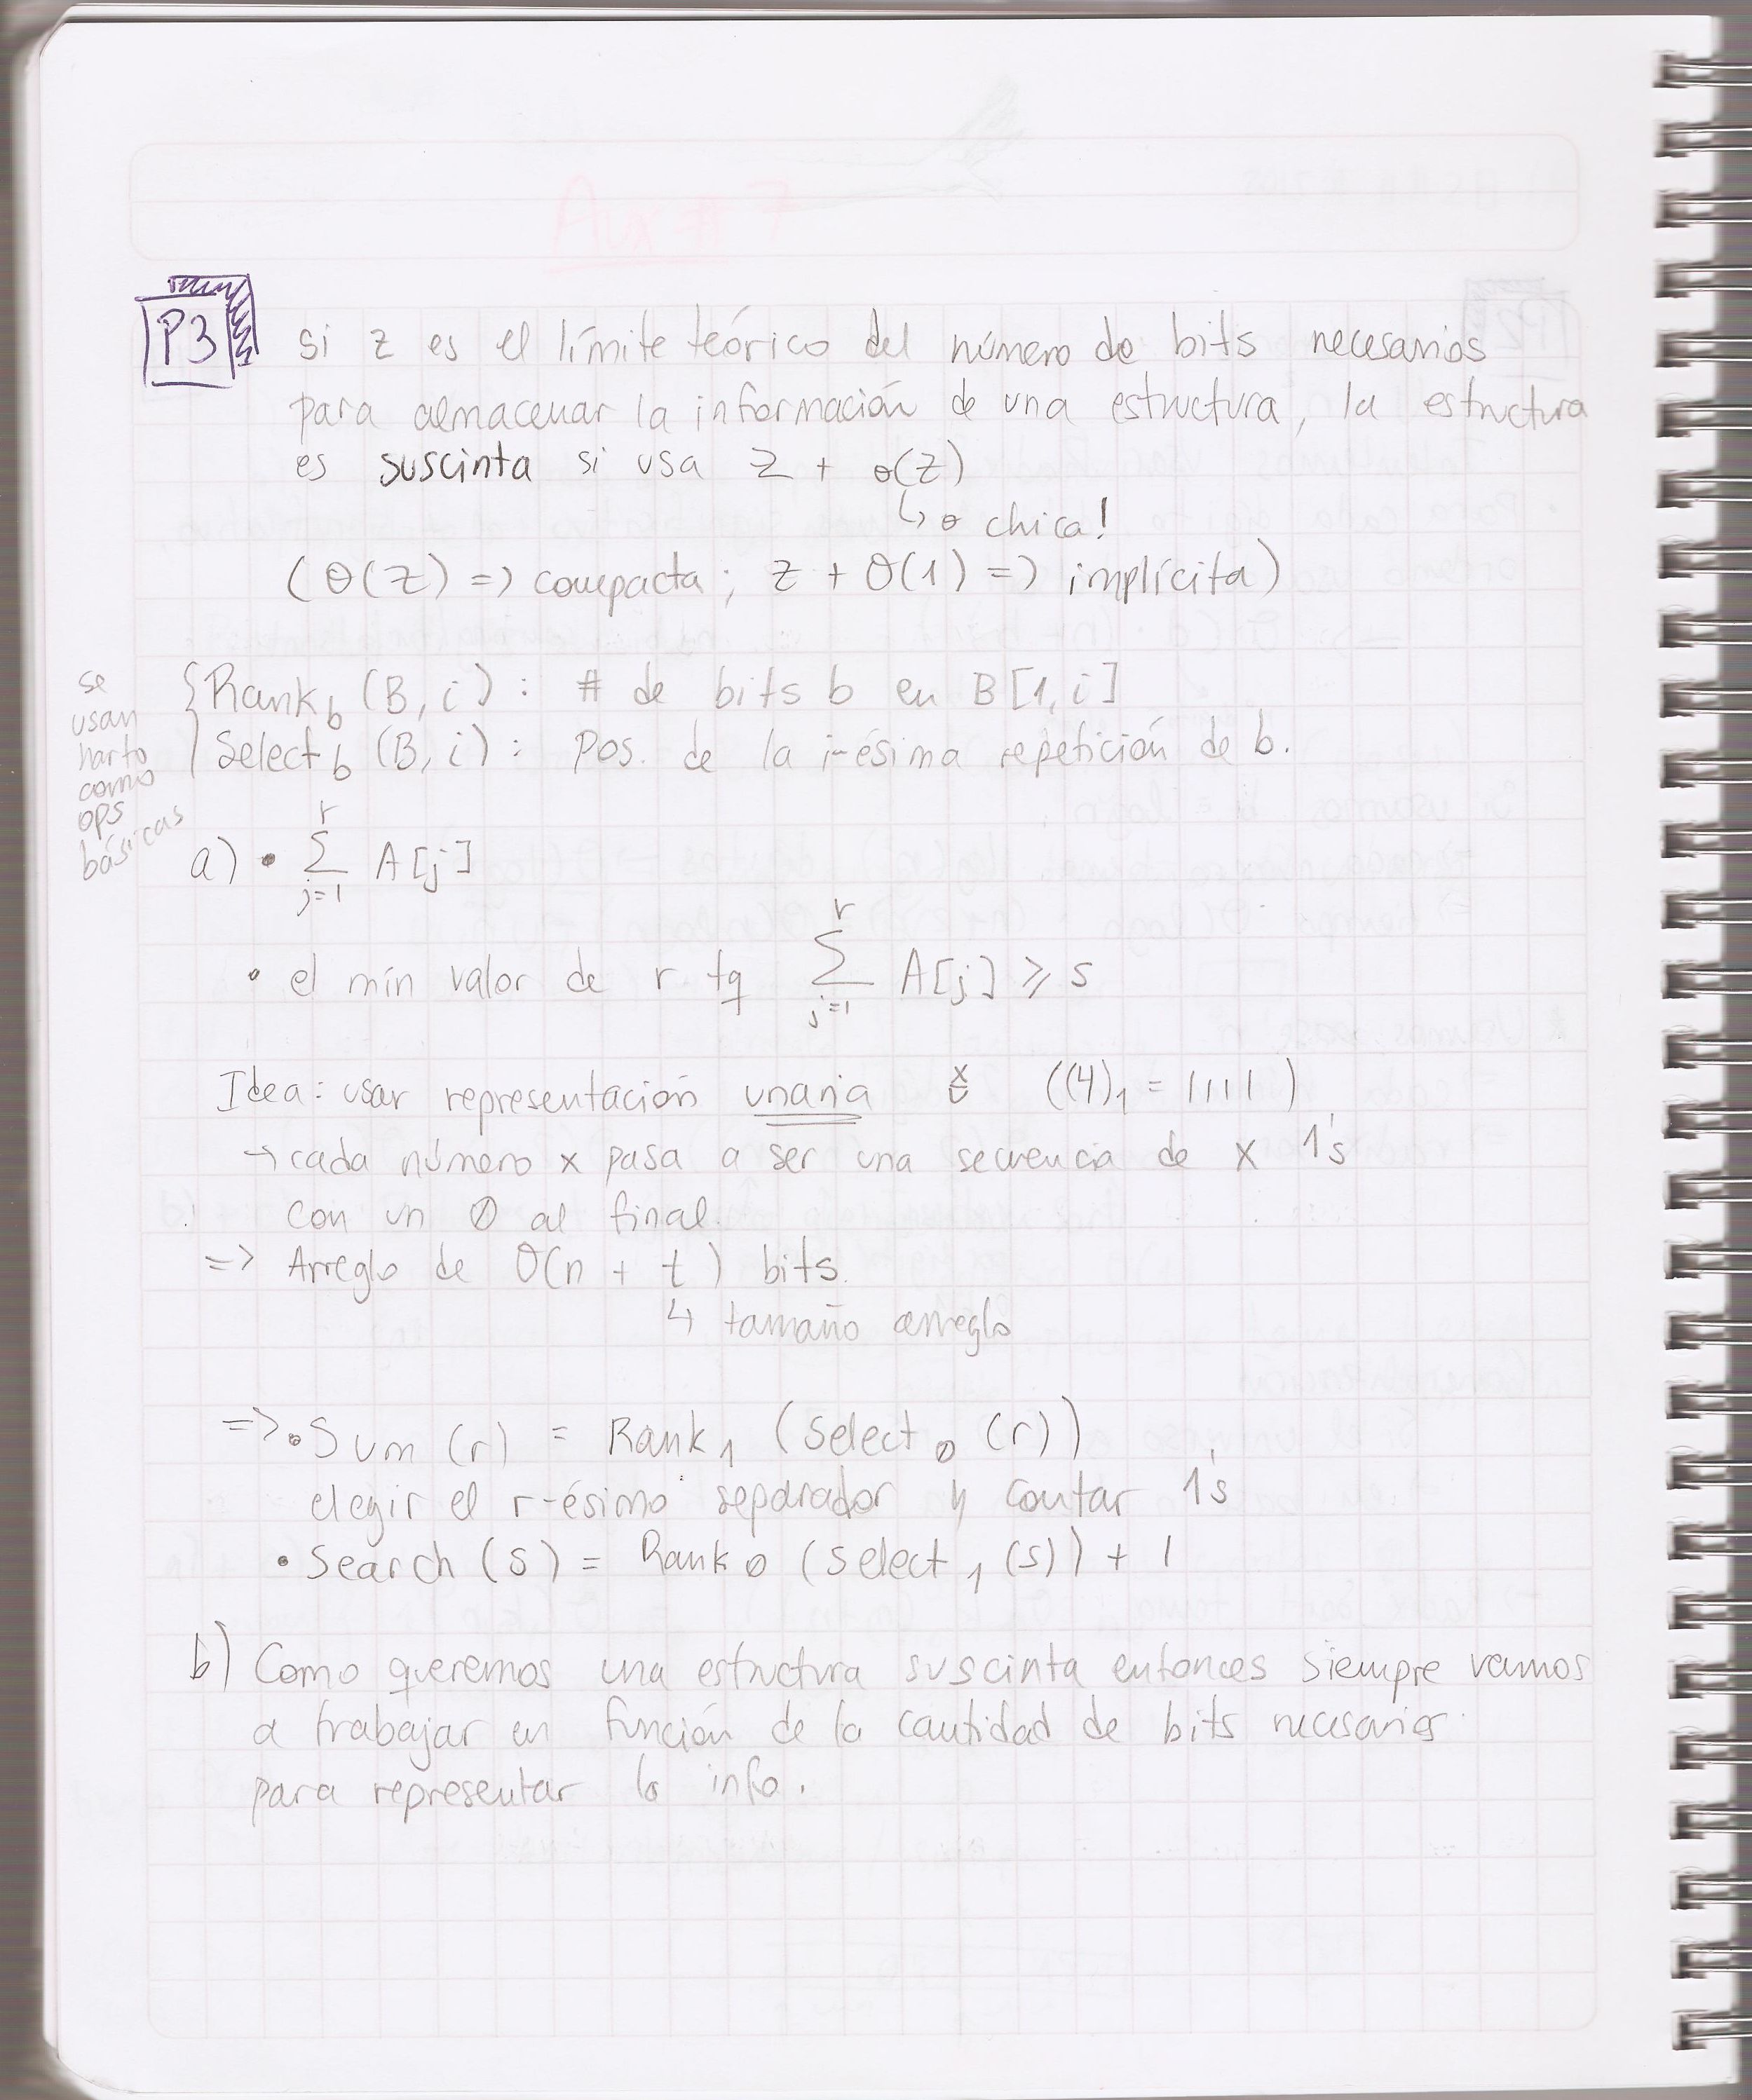 P3
si z es el límite teórico del número de bits necesarios
para almacenar la información de una estructura, la estructura
es suscinta si usa z + o(z)
↳ o chica!
(O(z) => compacta; z + O(1) => implícita)
se usan harto como ops básicas
{Rank_b (B, i) : # de bits b en B[1, i]
Select_b (B, i) : Pos. de la i-ésima repetición de b.
a) • ∑_{j=1}^{r} A[j]
• el mín valor de r tq ∑_{j=1}^{r} A[j] ≥ s
Idea: usar representación unaria ((4)₁ = 1111)
→ cada número x pasa a ser una secuencia de x 1's
con un 0 al final.
=> Arreglo de O(n + t) bits.
↳ tamaño arreglo
=> • Sum (r) = Rank₁ (Select₀ (r))
elegir el r-ésimo separador y contar 1's
• Search (s) = Rank₀ (select₁ (s)) + 1
b) Como queremos una estructura suscinta entonces siempre vamos
a trabajar en función de la cantidad de bits necesarios
para representar la info.